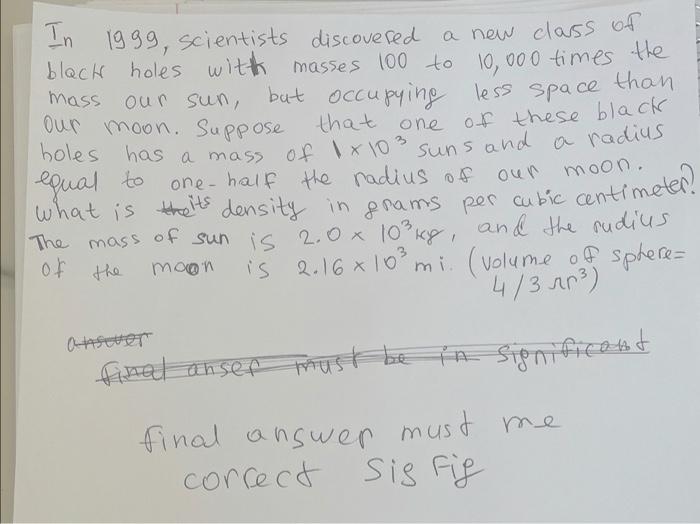 In 1999, scientists discovered a new class of
black holes with masses 100 to 10,000 times the
mass our sun, but occupying less space than
our moon. Suppose that one of these black
holes has a mass of 1×10³ suns and a radius
equal to one-half the radius of our moon.
what is its density in grams per cubic centimeter?
The mass of sun is 2.0 × 10³ kg, and the rudius
of the moon is 2.16 × 10³ mi. (volume of sphere=
4/3 πr³)
answer
final anser must be in significant
final answer must me
correct Sig Fig